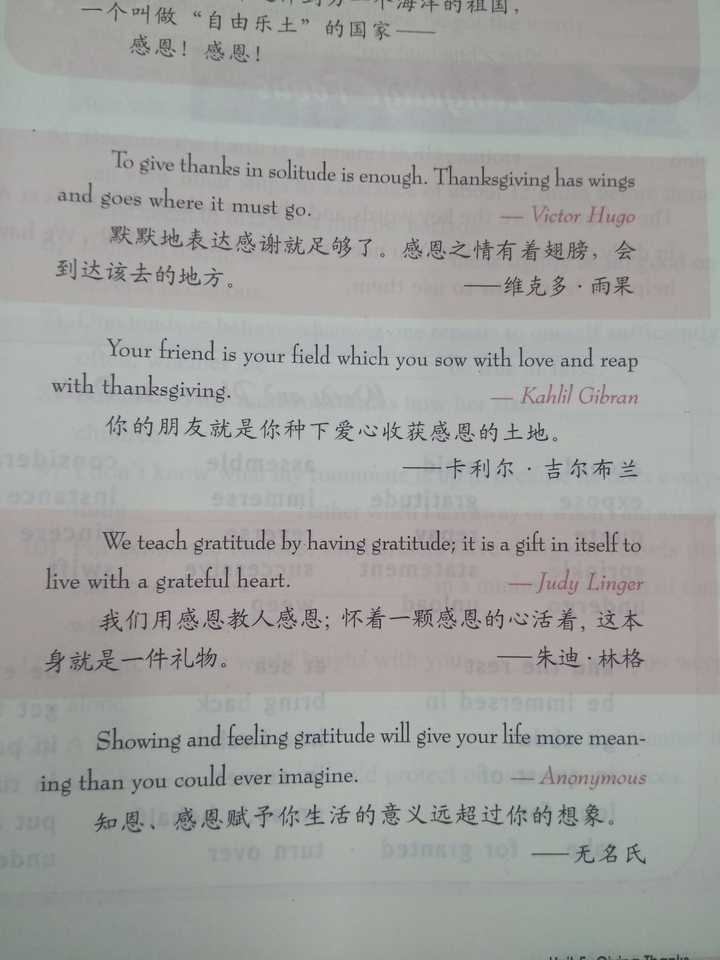 海洋的祖国，
一个叫做“自由乐土”的国家——
感恩！感恩！
To give thanks in solitude is enough. Thanksgiving has wings
and goes where it must go. — Victor Hugo
默默地表达感谢就足够了。感恩之情有着翅膀，会
到达该去的地方。 ——维克多·雨果
Your friend is your field which you sow with love and reap
with thanksgiving. — Kahlil Gibran
你的朋友就是你种下爱心收获感恩的土地。
——卡利尔·吉尔布兰
We teach gratitude by having gratitude; it is a gift in itself to
live with a grateful heart. — Judy Linger
我们用感恩教人感恩；怀着一颗感恩的心活着，这本
身就是一件礼物。 ——朱迪·林格
Showing and feeling gratitude will give your life more mean-
ing than you could ever imagine. — Anonymous
知恩、感恩赋予你生活的意义远超过你的想象。
——无名氏
Unit 5 Giving Thanks